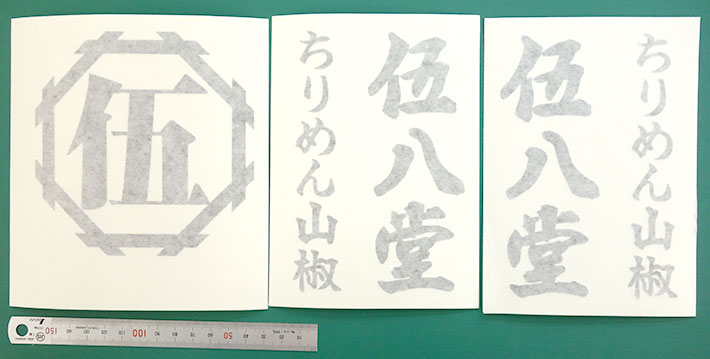 伍
伍八堂
ちりめん山椒
伍八堂
ちりめん山椒
150
100
50